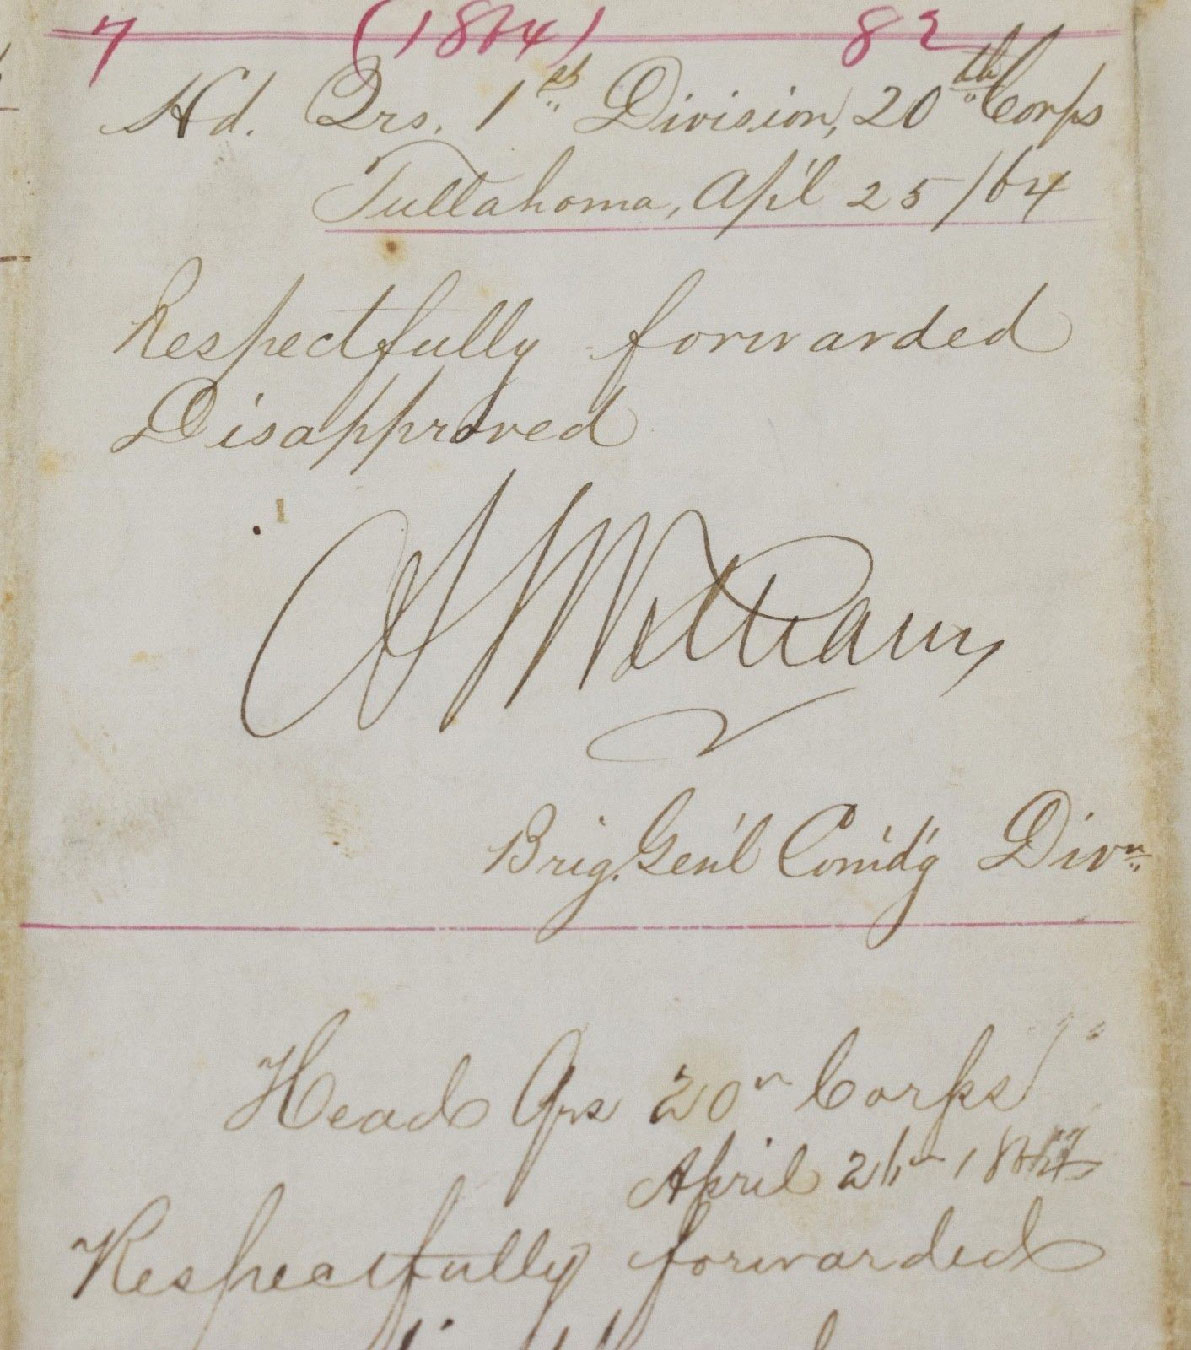 7 (1864) 82
Hd. Qrs. 1st Division, 20th Corps
Tullahoma, Ap'l 25/64
Respectfully forwarded
Disapproved
A S Williams
Brig. Gen'l Com'd'g Divn.
Head Qrs 20th Corps
April 26th 1864
Respectfully forwarded